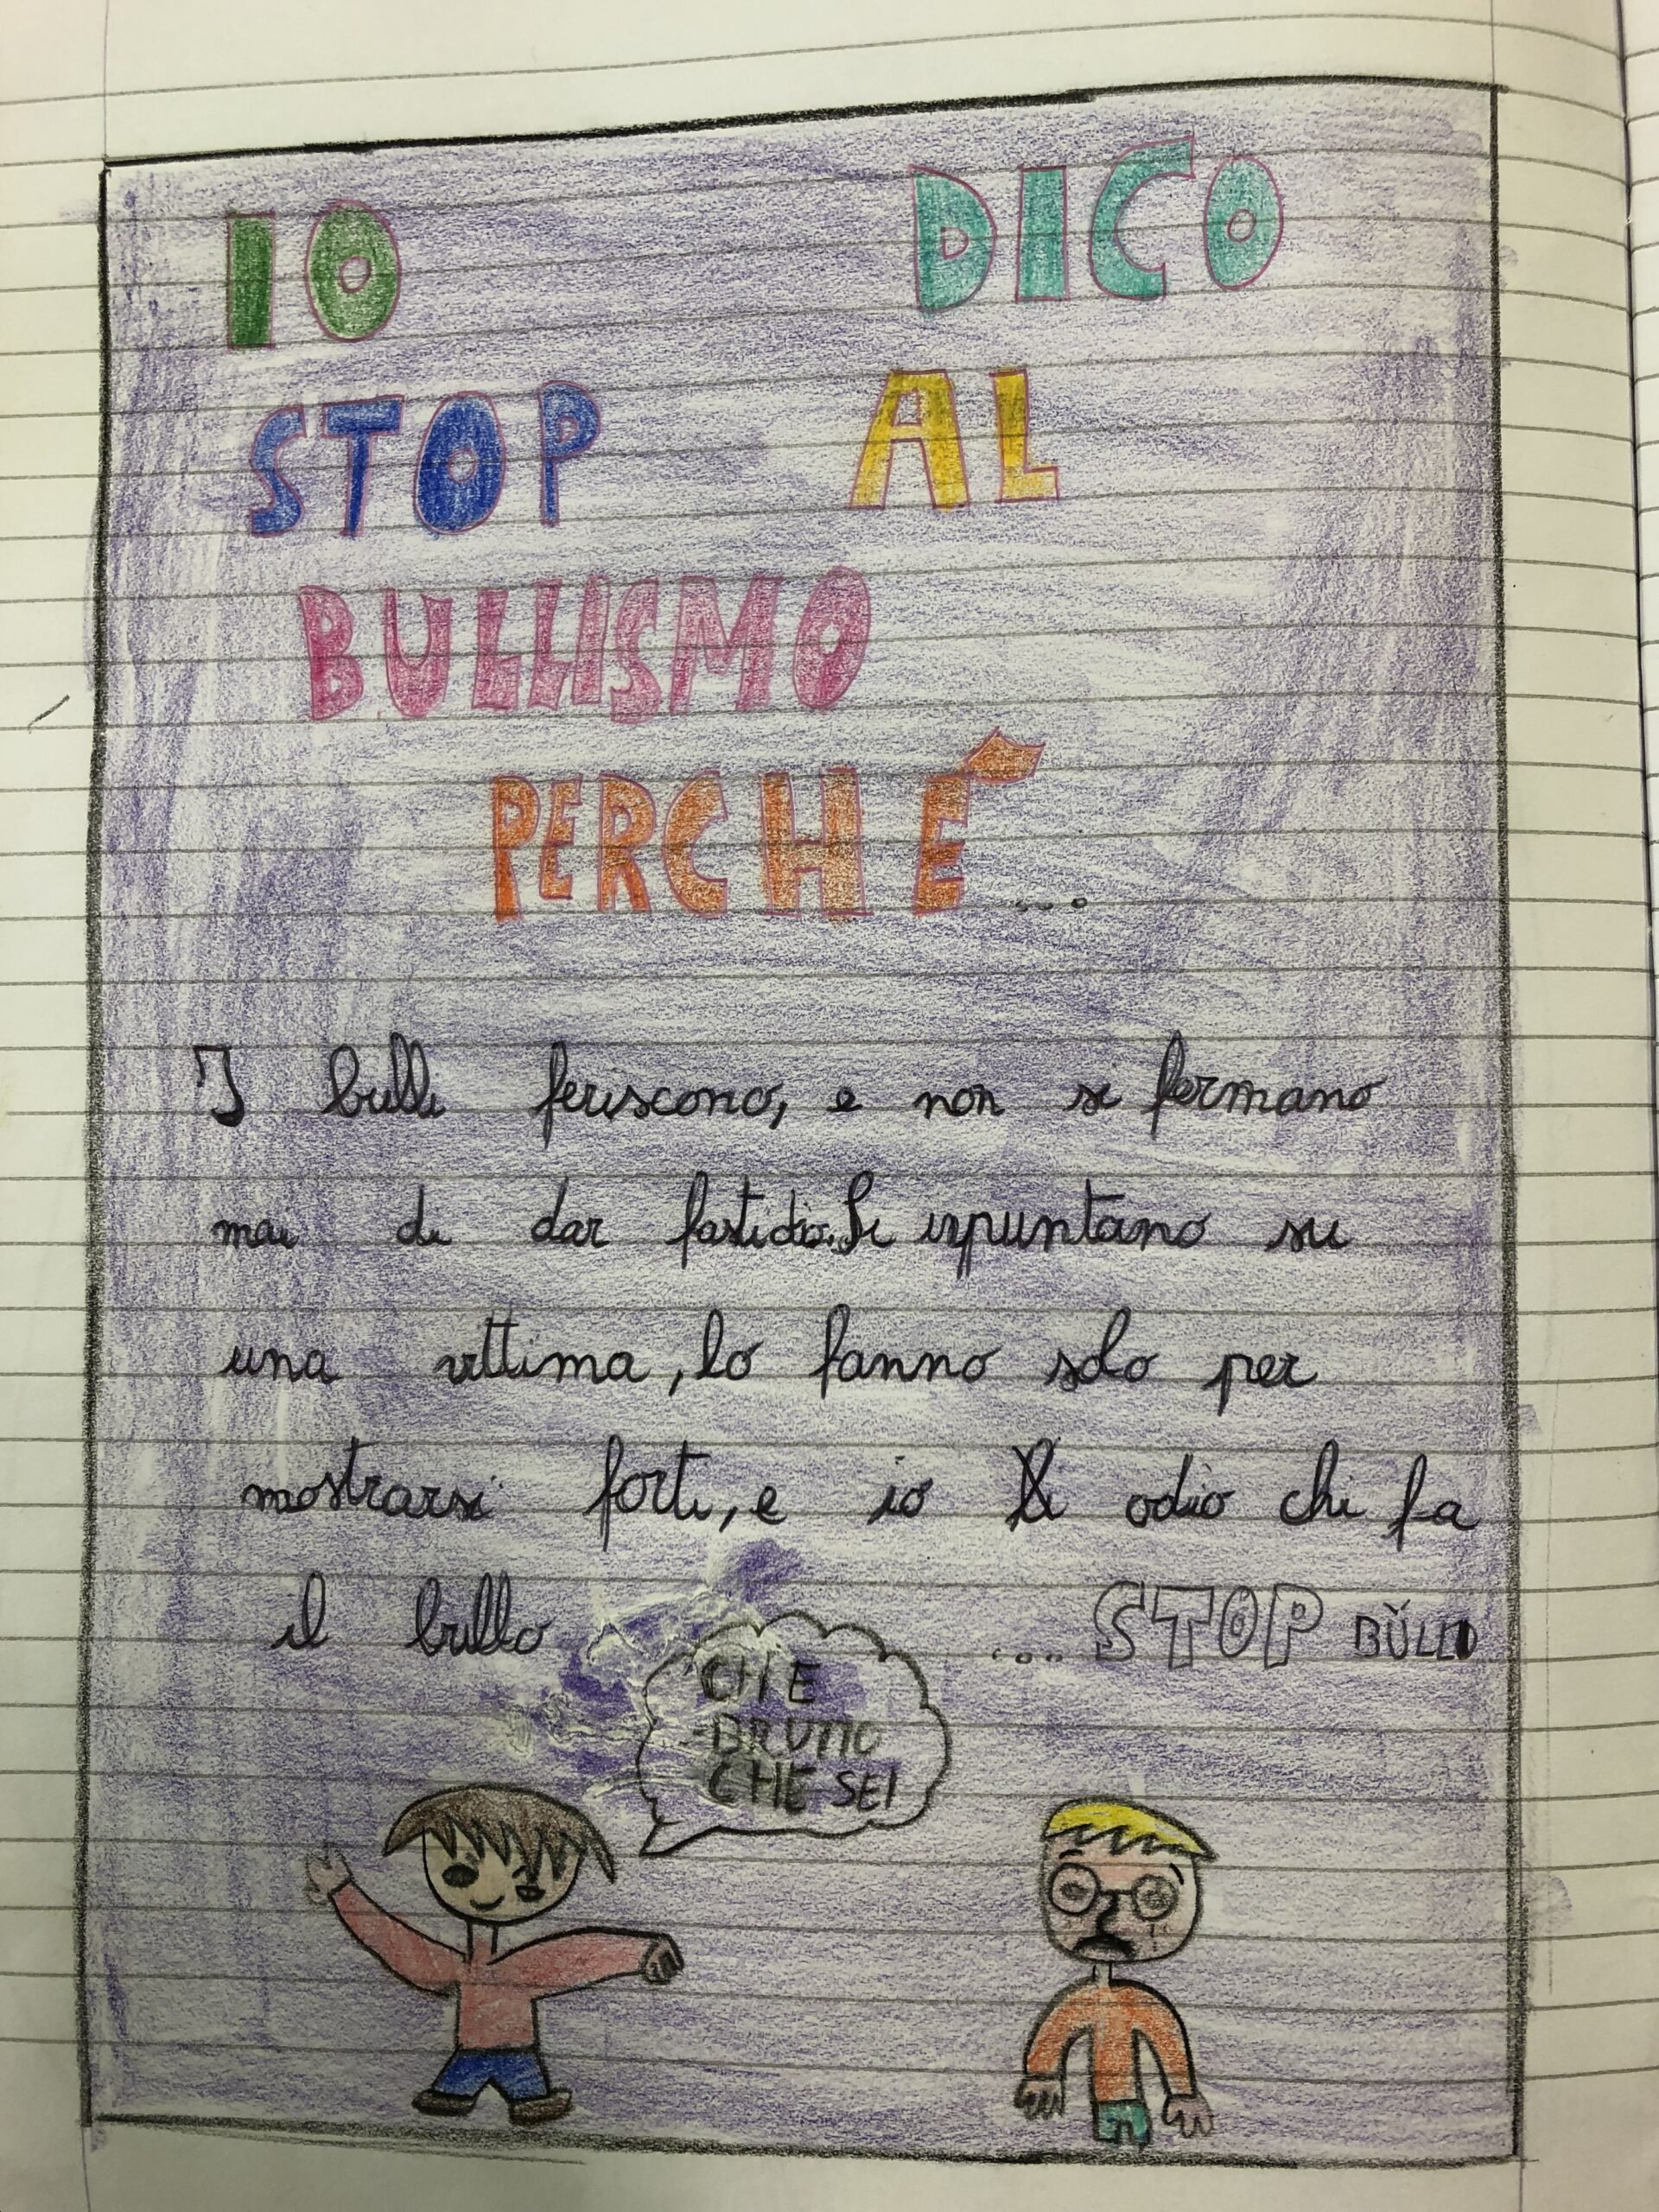 IO DICO
STOP AL
BULLISMO
PERCHÉ...
I bulli feriscono, e non si fermano
mai di dar fastidio. Si ispuntano su
una vittima, lo fanno solo per
mostrarsi forti, e io odio chi fa
il bullo ... STOP BULLO
CHE
BRUTTO
CHE SEI